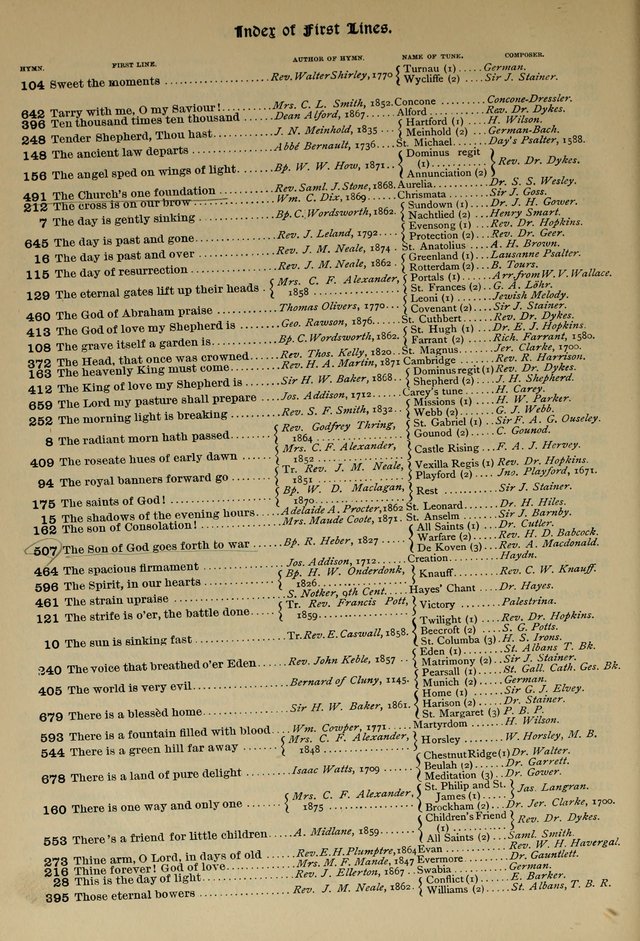 Index of First Lines.
HYMN. FIRST LINE. AUTHOR OF HYMN. NAME OF TUNE. COMPOSER.
104 Sweet the moments Rev. Walter Shirley, 1770 { Turnau (1) German.
Wycliffe (2) Sir J. Stainer.
642 Tarry with me, O my Saviour! Mrs. C. L. Smith, 1852. Concone Concone-Dressler.
396 Ten thousand times ten thousand Dean Alford, 1867 Alford Rev. Dr. Dykes.
248 Tender Shepherd, Thou hast J. N. Meinhold, 1835 { Hartford (1) H. Wilson.
Meinhold (2) German-Bach.
148 The ancient law departs Abbé Bernault, 1736 St. Michael Day's Psalter, 1588.
156 The angel sped on wings of light Bp. W. W. How, 1871 { Dominus regit (1) } Rev. Dr. Dykes.
Annunciation (2)
491 The Church's one foundation Rev. Saml. J. Stone, 1868. Aurelia Dr. S. S. Wesley.
212 The cross is on our brow Wm. C. Dix, 1869 Chrismata Sir J. Goss.
7 The day is gently sinking Bp. C. Wordsworth, 1862 { Sundown (1) Dr. J. H. Gower.
Nachtlied (2) Henry Smart.
645 The day is past and gone Rev. J. Leland, 1792 { Evensong (1) Rev. Dr. Hopkins.
Protection (2) Rev. Dr. Geer.
16 The day is past and over Rev. J. M. Neale, 1874 St. Anatolius A. H. Brown.
115 The day of resurrection Rev. J. M. Neale, 1862 { Greenland (1) Lausanne Psalter.
Rotterdam (2) B. Tours.
129 The eternal gates lift up their heads { Mrs. C. F. Alexander, 1858 { Portals (1) Arr. from W. V. Wallace.
St. Frances (2) G. A. Löhr.
460 The God of Abraham praise Thomas Olivers, 1770 { Leoni (1) Jewish Melody.
Covenant (2) Sir J. Stainer.
413 The God of love my Shepherd is Geo. Rawson, 1876 St. Cuthbert Rev. Dr. Dykes.
108 The grave itself a garden is Bp. C. Wordsworth, 1862. { St. Hugh (1) Dr. E. J. Hopkins.
Farrant (2) Rich. Farrant, 1580.
372 The Head, that once was crowned Rev. Thos. Kelly, 1820 St. Magnus Jer. Clarke, 1700.
163 The heavenly King must come Rev. H. A. Martin, 1871 Cambridge Rev. R. Harrison.
412 The King of love my Shepherd is Sir H. W. Baker, 1868 { Dominus regit (1) Rev. Dr. Dykes.
Shepherd (2) J. H. Shepherd.
659 The Lord my pasture shall prepare Jos. Addison, 1712 Carey's tune H. Carey.
252 The morning light is breaking Rev. S. F. Smith, 1832 { Missions (1) H. W. Parker.
Webb (2) G. J. Webb.
8 The radiant morn hath passed { Rev. Godfrey Thring, 1864 { St. Gabriel (1) Sir F. A. G. Ouseley.
Gounod (2) C. Gounod.
409 The roseate hues of early dawn { Mrs. C. F. Alexander, 1852 Castle Rising F. A. J. Hervey.
94 The royal banners forward go { Tr. Rev. J. M. Neale, 1851 { Vexilla Regis (1) Rev. Dr. Hopkins.
Playford (2) Jno. Playford, 1671.
175 The saints of God! { Bp. W. D. Maclagan, 1870 Rest Sir J. Stainer.
15 The shadows of the evening hours Adelaide A. Procter, 1862 St. Leonard Dr. H. Hiles.
162 The son of Consolation! Mrs. Maude Coote, 1871 St. Anselm Sir J. Barnby.
507 The Son of God goes forth to war Bp. R. Heber, 1827 { All Saints (1) Dr. Cutler.
Warfare (2) Rev. H. D. Babcock.
De Koven (3) Rev. A. Macdonald.
464 The spacious firmament Jos. Addison, 1712 Creation Haydn.
596 The Spirit, in our hearts { Bp. H. W. Onderdonk, 1826 Knauff Rev. C. W. Knauff.
461 The strain upraise S. Notker, 9th Cent. Hayes' Chant Dr. Hayes.
121 The strife is o'er, the battle done { Tr. Rev. Francis Pott, 1859 Victory Palestrina.
10 The sun is sinking fast Tr. Rev. E. Caswall, 1858. { Twilight (1) Rev. Dr. Hopkins.
Beecroft (2) S. G. Potts.
St. Columba (3) H. S. Irons.
240 The voice that breathed o'er Eden Rev. John Keble, 1857 { Eden (1) St. Albans T. Bk.
Matrimony (2) Sir J. Stainer.
405 The world is very evil Bernard of Cluny, 1145. { Pearsall (1) St. Gall. Cath. Ges. Bk.
Munich (2) German.
679 There is a blessèd home Sir H. W. Baker, 1861. { Home (1) Sir G. J. Elvey.
Harison (2) Dr. Stainer.
St. Margaret (3) P. B. P.
593 There is a fountain filled with blood Wm. Cowper, 1771 Martyrdom H. Wilson.
544 There is a green hill far away { Mrs. C. F. Alexander, 1848 Horsley W. Horsley, M. B.
678 There is a land of pure delight Isaac Watts, 1709 { Chestnut Ridge (1) Dr. Walter.
Beulah (2) Dr. Garrett.
Meditation (3) Dr. Gower.
160 There is one way and only one { Mrs. C. F. Alexander, 1875 { St. Philip and St. James (1) } Jas. Langran.
Brockham (2) Dr. Jer. Clarke, 1700.
553 There's a friend for little children A. Midlane, 1859 { Children's Friend (1) } Rev. Dr. Dykes.
All Saints (2) Saml. Smith.
273 Thine arm, O Lord, in days of old Rev. E. H. Plumptre, 1864 Evan Rev. W. H. Havergal.
216 Thine forever! God of love Mrs. M. F. Mande, 1847 Evermore Dr. Gauntlett.
28 This is the day of light Rev. J. Ellerton, 1867 Swabia German.
395 Those eternal bowers Rev. J. M. Neale, 1862 { Conflict (1) E. Barker.
Williams (2) St. Albans, T. B. R.